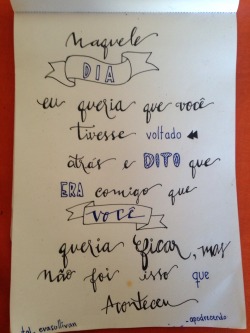 Naquele
DIA
eu queria que você
tivesse voltado
atrás e DITO que
ERA comigo que
VOCÊ
queria ficar, mas
não foi isso que
Aconteceu
_apodrecendo